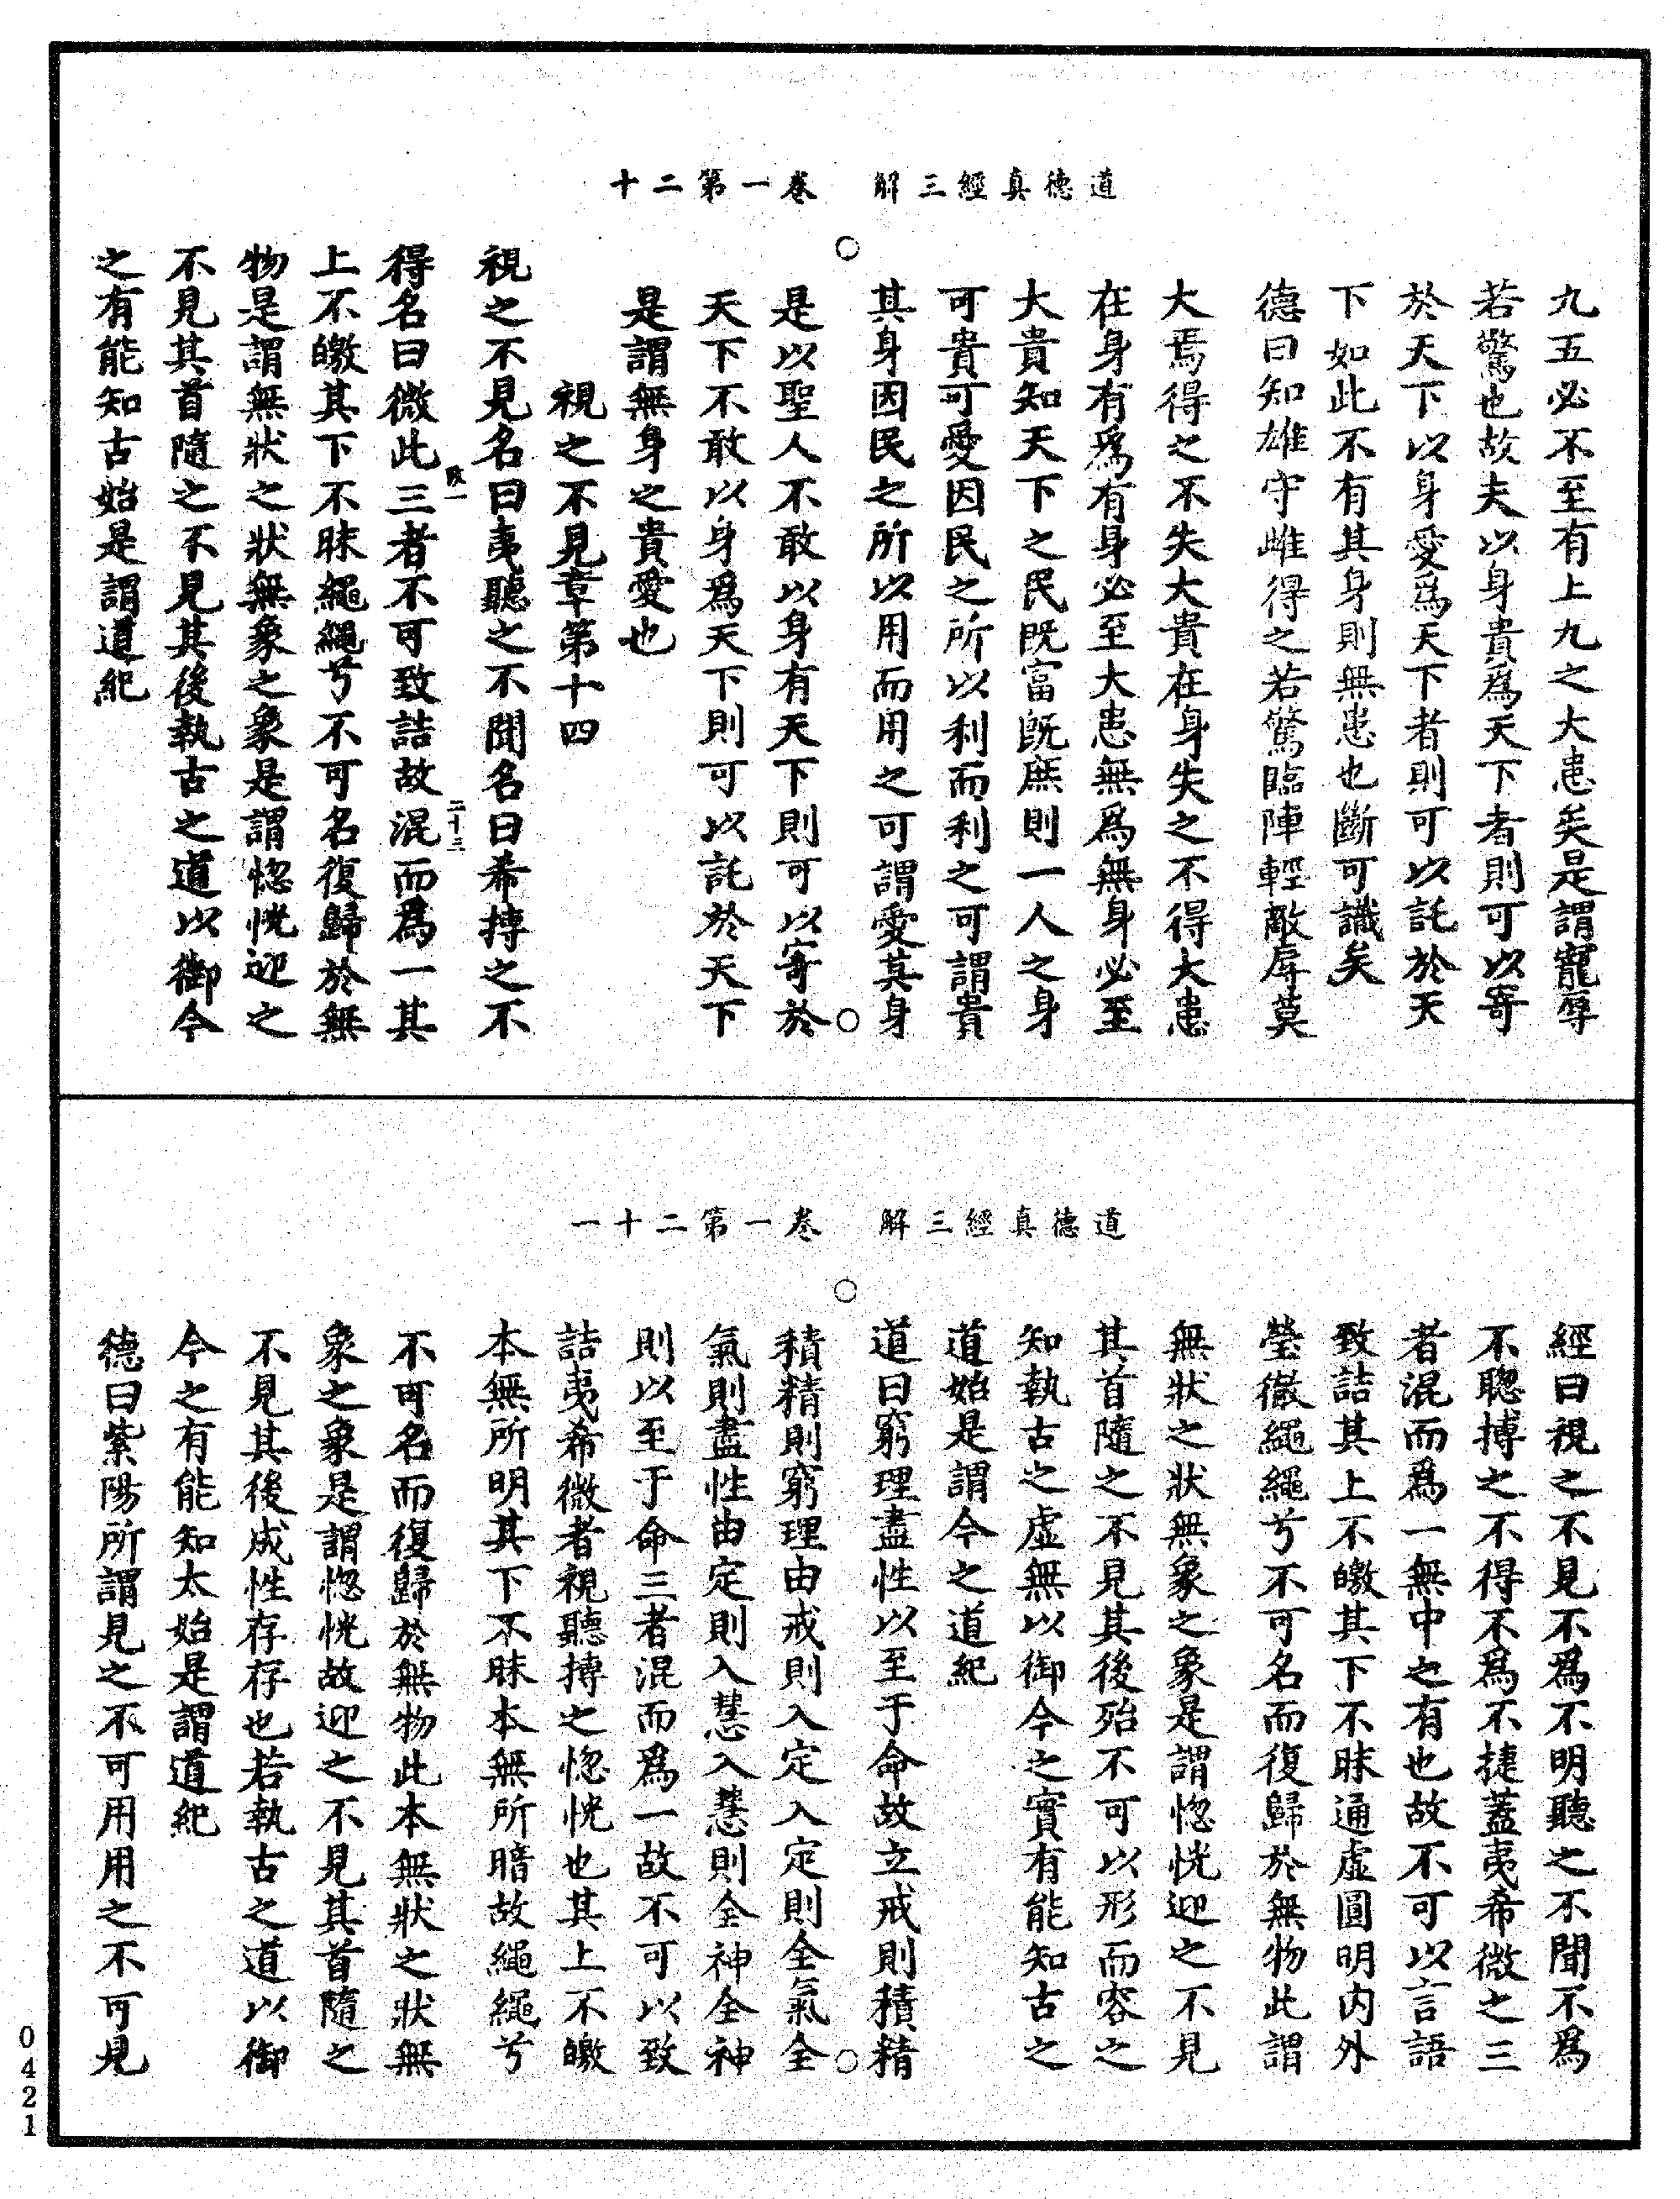 道德真經三解　卷一第二十
九五必不至有上九之大患矣是謂寵辱
若驚也故夫以身貴爲天下者則可以寄
於天下以身愛爲天下者則可以託於天
下如此不有其身則無患也斷可識矣
德曰知雄守雌得之若驚臨陣輕敵辱莫
大焉得之不失大貴在身失之不得大患
在身有爲有身必至大患無爲無身必至
大貴知天下之民既富既庶則一人之身
可貴可愛因民之所以利而利之可謂貴
其身因民之所以用而用之可謂愛其身
是以聖人不敢以身有天下則可以寄於
天下不敢以身爲天下則可以託於天下
是謂無身之貴愛也
視之不見章第十四
視之不見名曰夷聽之不聞名曰希搏之不
得名曰微此三者不可致詰故混而爲一其
上不皦其下不昧繩繩兮不可名復歸於無
物是謂無狀之狀無象之象是謂惚恍迎之
不見其首隨之不見其後執古之道以御今
之有能知古始是謂道紀
二十三
道德真經三解　卷一第二十一
經曰視之不見不爲不明聽之不聞不爲
不聰搏之不得不爲不捷蓋夷希微之三
者混而爲一無中之有也故不可以言語
致詰其上不皦其下不昧通虛圓明内外
瑩徹繩繩兮不可名而復歸於無物此謂
無狀之狀無象之象是謂惚恍迎之不見
其首隨之不見其後殆不可以形而容之
知執古之虛無以御今之實有能知古之
道始是謂今之道紀
道曰窮理盡性以至于命故立戒則積精
積精則窮理由戒則入定入定則全氣全
氣則盡性由定則入慧入慧則全神全神
則以至于命三者混而爲一故不可以致
詰夷希微者視聽搏之惚恍也其上不皦
本無所明其下不昧本無所暗故繩繩兮
不可名而復歸於無物此本無狀之狀無
象之象是謂惚恍故迎之不見其首隨之
不見其後成性存存也若執古之道以御
今之有能知太始是謂道紀
德曰紫陽所謂見之不可用用之不可見
0421